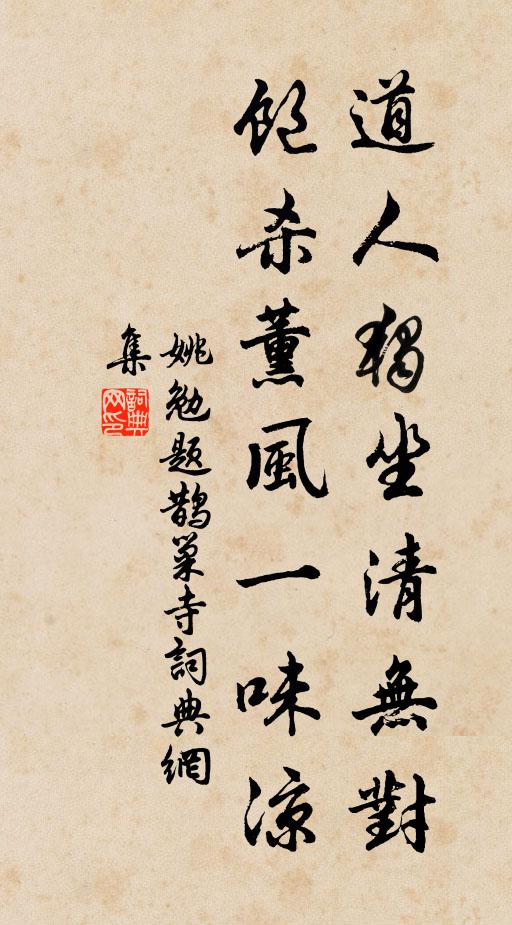 道人獨坐清無對
飽殺薰風一味涼
姚勉題鵲巢寺詞典網
集
詞典
网印